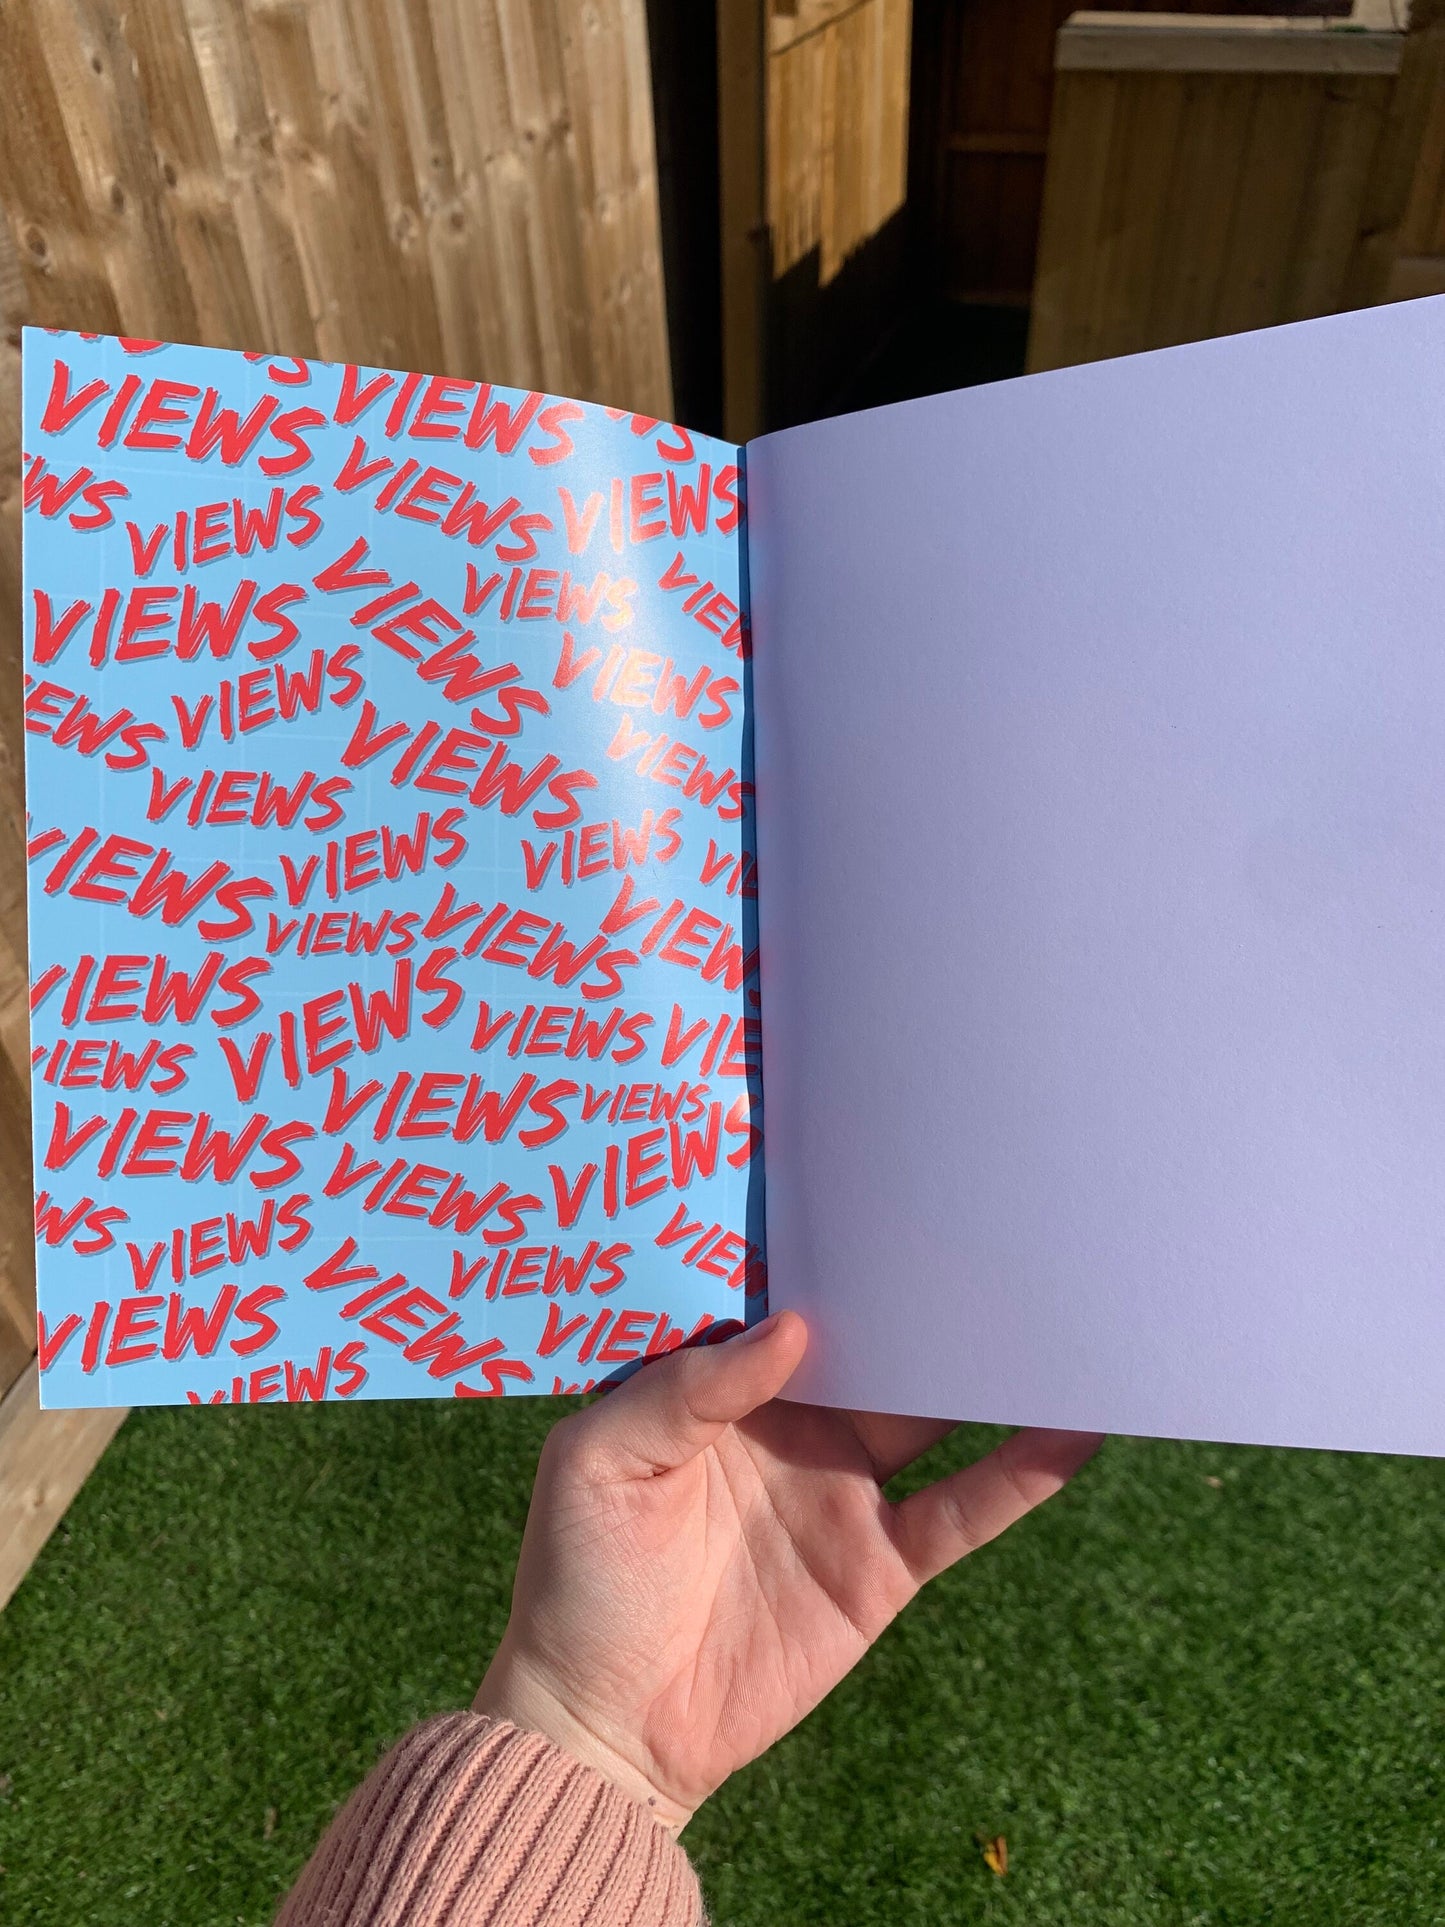 VIEWS VIEWS
VIEWS VIEWS VIEWS
WS VIEWS VIEWS VIEWS
VIEWS VIEWS VIEWS
IEWS VIEWS VIEWS VIEWS
VIEWS
VIEWS VIEWS VIEWS VI
VIEWS VIEWS VIEWS
VIEWS VIEWS VIEWS VIE
VIEWS VIEWS VIEWS
VIEWS VIEWS VIEWS
WS VIEWS VIEWS VIEW
VIEWS VIEWS VIEWS
VIEWS